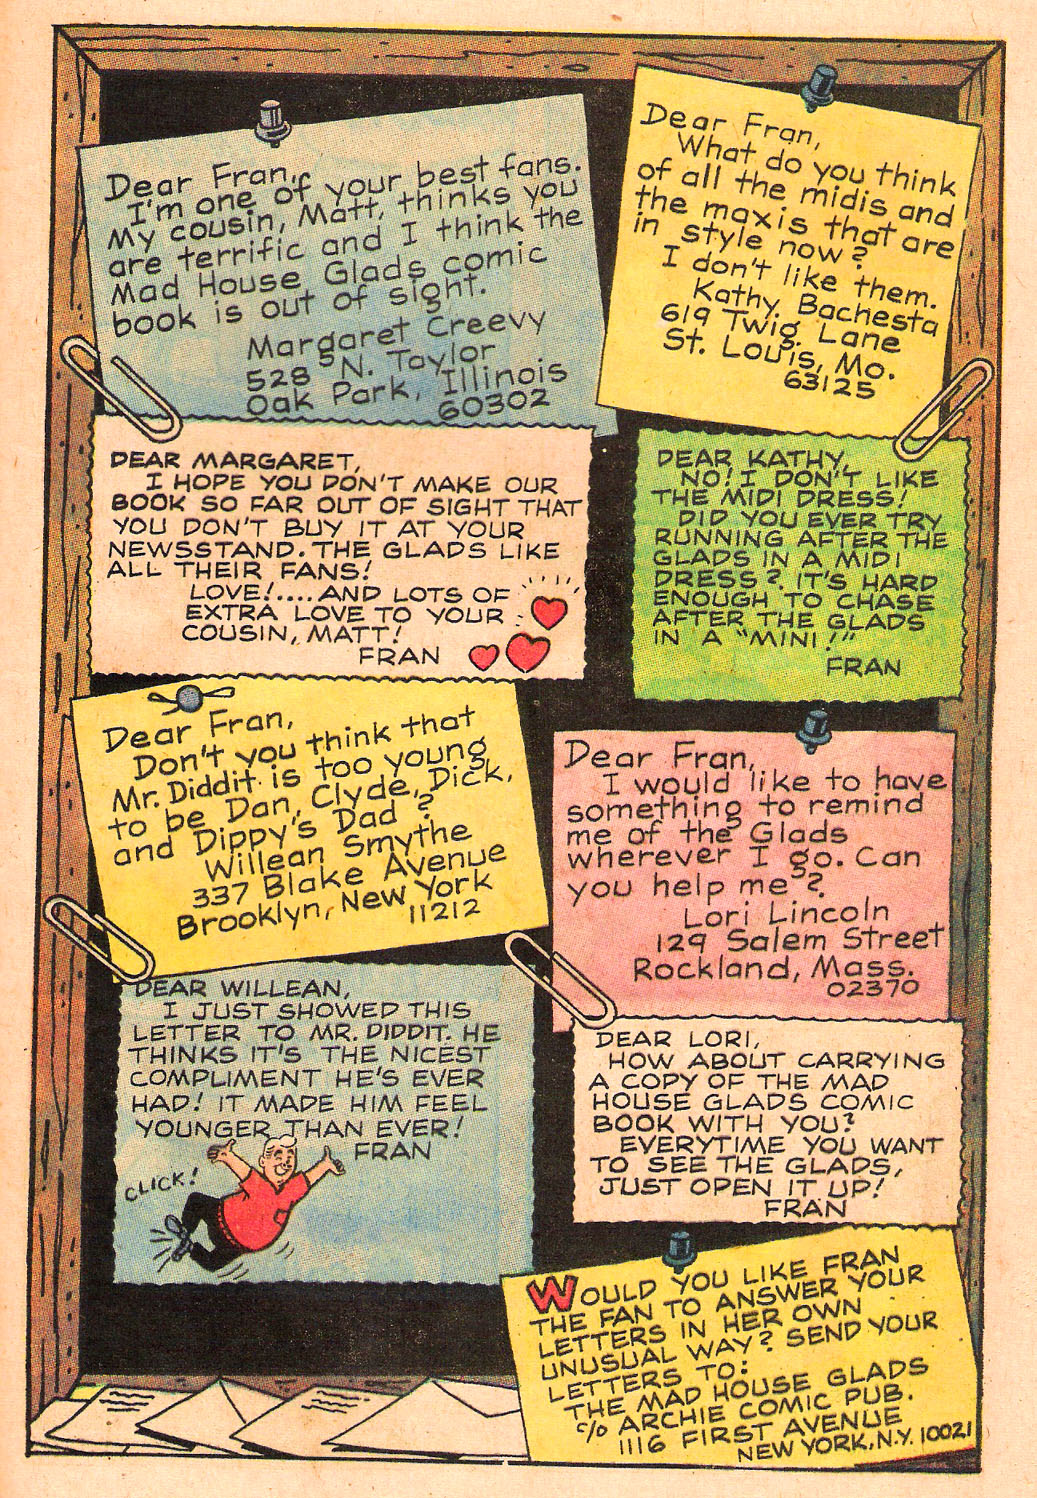 Dear Fran,
I'm one of your best fans.
My cousin, Matt, thinks you
are terrific and I think the
Mad House Glads comic
book is out of sight.
Margaret Creevy
528 N. Taylor
Oak Park, Illinois
60302
DEAR MARGARET,
I HOPE YOU DON'T MAKE OUR
BOOK SO FAR OUT OF SIGHT THAT
YOU DON'T BUY IT AT YOUR
NEWSSTAND. THE GLADS LIKE
ALL THEIR FANS!
LOVE!....AND LOTS OF
EXTRA LOVE TO YOUR
COUSIN, MATT!
FRAN
Dear Fran,
What do you think
of all the midis and
the maxis that are
in style now?
I don't like them.
Kathy Bachesta
619 Twig Lane
St. Louis, Mo.
63125
DEAR KATHY,
NO! I DON'T LIKE
THE MIDI DRESS!
DID YOU EVER TRY
RUNNING AFTER THE
GLADS IN A MIDI
DRESS? IT'S HARD
ENOUGH TO CHASE
AFTER THE GLADS
IN A "MINI!"
FRAN
Dear Fran,
Don't you think that
Mr. Diddit is too young
to be Dan, Clyde, Dick,
and Dippy's Dad?
Willean Smythe
337 Blake Avenue
Brooklyn, New York
11212
DEAR WILLEAN,
I JUST SHOWED THIS
LETTER TO MR. DIDDIT. HE
THINKS IT'S THE NICEST
COMPLIMENT HE'S EVER
HAD! IT MADE HIM FEEL
YOUNGER THAN EVER!
FRAN
CLICK!
Dear Fran,
I would like to have
something to remind
me of the Glads
wherever I go. Can
you help me?
Lori Lincoln
129 Salem Street
Rockland, Mass.
02370
DEAR LORI,
HOW ABOUT CARRYING
A COPY OF THE MAD
HOUSE GLADS COMIC
BOOK WITH YOU?
EVERYTIME YOU WANT
TO SEE THE GLADS,
JUST OPEN IT UP!
FRAN
WOULD YOU LIKE FRAN
THE FAN TO ANSWER YOUR
LETTERS IN HER OWN
UNUSUAL WAY? SEND YOUR
LETTERS TO:
THE MAD HOUSE GLADS
c/o ARCHIE COMIC PUB.
1116 FIRST AVENUE
NEW YORK, N.Y. 10021